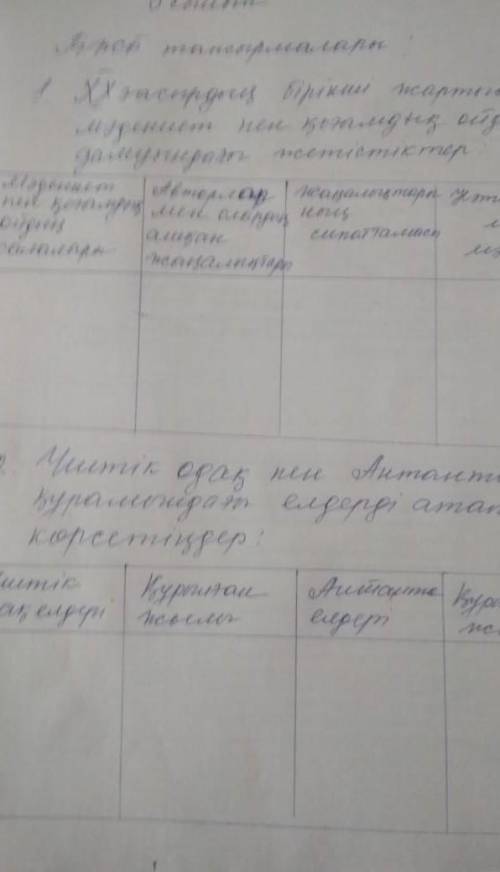 тапсырмалары:
1 XX ғасырдың бірінші
мәдениет пен қоғамдық
дамуындағы жетістіктер
Мәдениет
пен қоғамдық
ойдың
салалары
Авторлар
мен олардың
ашқан
жаңалықтары
жаңалықтары
ның
сипаттамасы
2. Үштік одақ пен
құрамындағы елдерді
көрсетіңдер:
Үштік
елдері
Құрылған
жылы
Антанта
елдері